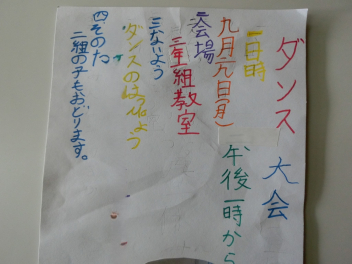 ダンス大会
一日時
九月九日(月)
午後一時から
二会場
三年一組教室
三ないよう
ダンスのはっぴょう
四そのた
二組の子もおどります。